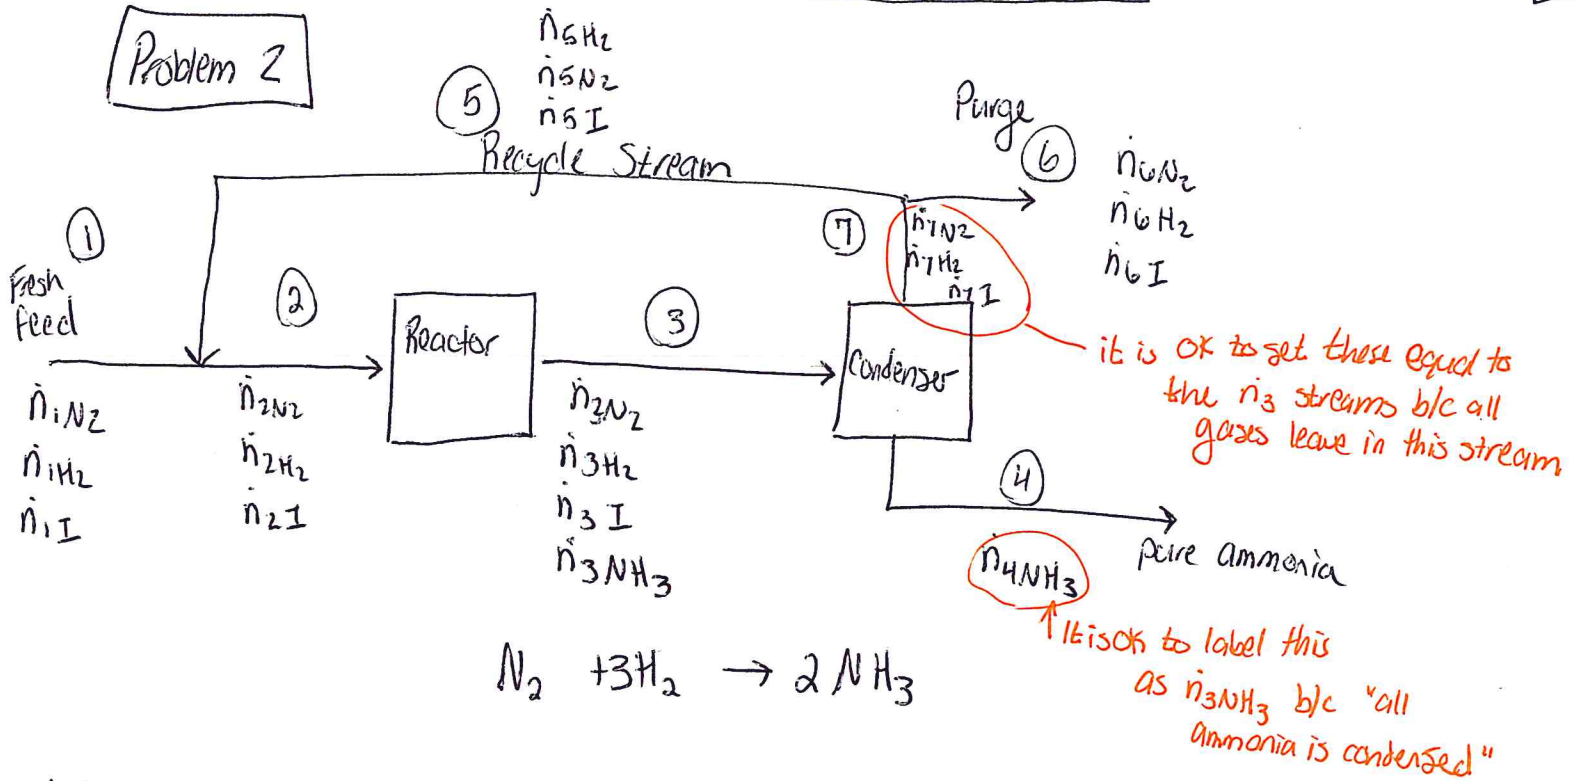 Problem 2
ṅ5H2
ṅ5N2
ṅ5I
5
Recycle Stream
Purge
6
ṅ6N2
ṅ6H2
ṅ6I
1
Fresh
feed
ṅ1N2
ṅ1H2
ṅ1I
2
ṅ2N2
ṅ2H2
ṅ2I
Reactor
3
ṅ3N2
ṅ3H2
ṅ3I
ṅ3NH3
7
ṅ7N2
ṅ7H2
ṅ7I
Condenser
it is OK to set these equal to
the ṅ3 streams b/c all
gases leave in this stream
4
ṅ4NH3
pure ammonia
It is OK to label this
as ṅ3NH3 b/c "all
ammonia is condensed"
N2 + 3H2 → 2NH3